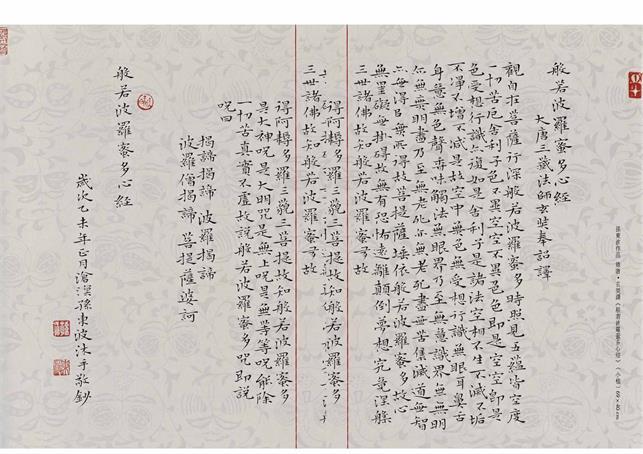 般若波羅蜜多心經
大唐三藏法師玄奘奉詔譯
觀自在菩薩行深般若波羅蜜多時照見五蘊皆空度
一切苦厄舍利子色不異空空不異色色即是空空即是
色受想行識亦復如是舍利子是諸法空相不生不滅不垢
不淨不增不減是故空中無色無受想行識無眼耳鼻舌
身意無色聲香味觸法無眼界乃至無意識界無無明
亦無無明盡乃至無老死亦無老死盡無苦集滅道無智
亦無得以無所得故菩提薩埵依般若波羅蜜多故心
無罣礙無罣礙故無有恐怖遠離顛倒夢想究竟涅槃
三世諸佛故知般若波羅蜜多故
得阿耨多羅三藐三菩提故知般若波羅蜜多
三世諸佛故知般若波羅蜜多故
得阿耨多羅三藐三菩提故知般若波羅蜜多
是大神咒是大明咒是無上咒是無等等咒能除
一切苦真實不虛故說般若波羅蜜多咒即說
咒曰
揭諦揭諦 波羅揭諦
波羅僧揭諦 菩提薩婆訶
般若波羅蜜多心經
歲次乙未年正月滄溟孫東波沐手敬鈔